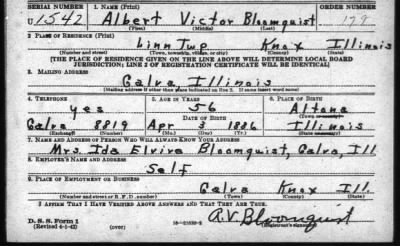 SERIAL NUMBER 1. NAME (Print) ORDER NUMBER
U 1542 Albert Victor Bloomquist 178
(First) (Middle) (Last)
2. PLACE OF RESIDENCE (Print)
Linn Twp Knox Illinois
(Number and street) (Town, township, village, or city) (County) (State)
[THE PLACE OF RESIDENCE GIVEN ON THE LINE ABOVE WILL DETERMINE LOCAL BOARD
JURISDICTION; LINE 2 OF REGISTRATION CERTIFICATE WILL BE IDENTICAL]
3. MAILING ADDRESS
Galva Illinois
[Mailing address if other than place indicated on line 2. If same insert word same]
4. TELEPHONE 5. AGE IN YEARS 6. PLACE OF BIRTH
yes 56 Altona
DATE OF BIRTH (Town or county)
Galva 8819 Apr 3 1886 Illinois
(Exchange) (Number) (Mo.) (Day) (Yr.) (State or country)
7. NAME AND ADDRESS OF PERSON WHO WILL ALWAYS KNOW YOUR ADDRESS
Mrs. Ida Elvira Bloomquist, Galva, Ill
8. EMPLOYER'S NAME AND ADDRESS
Self
9. PLACE OF EMPLOYMENT OR BUSINESS
Galva Knox Ill.
(Number and street or R. F. D. number) (Town) (County) (State)
I AFFIRM THAT I HAVE VERIFIED ABOVE ANSWERS AND THAT THEY ARE TRUE.
D. S. S. Form 1
(Revised 4-1-42) (over) A.V. Bloomquist